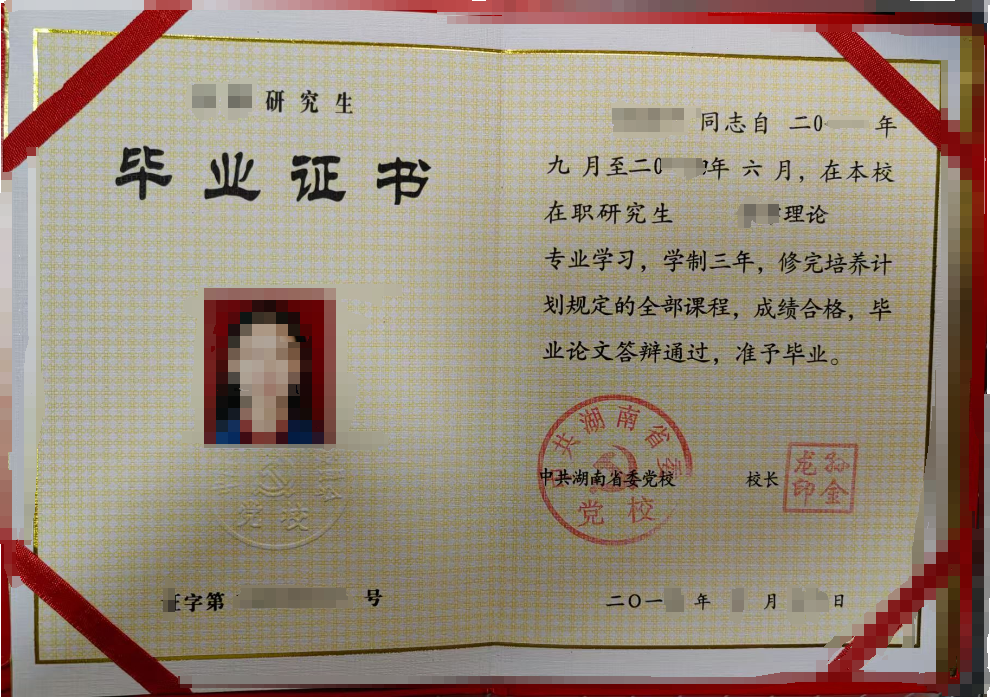 研究生
毕业证书
党校
字第 号
同志自 二0 年
九 月至二0 年 六 月，在本校
在职研究生 理论
专业学习，学制三年，修完培养计
划规定的全部课程，成绩合格，毕
业论文答辩通过，准予毕业。
共湖南省委
党校
中共湖南省委党校 校长
龙孙
印金
二〇一 年 月 日